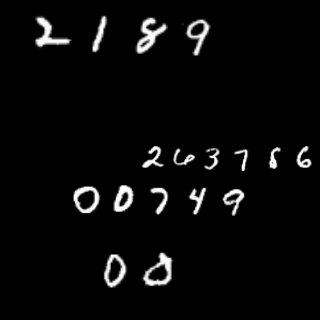 2189
263786
00749
00